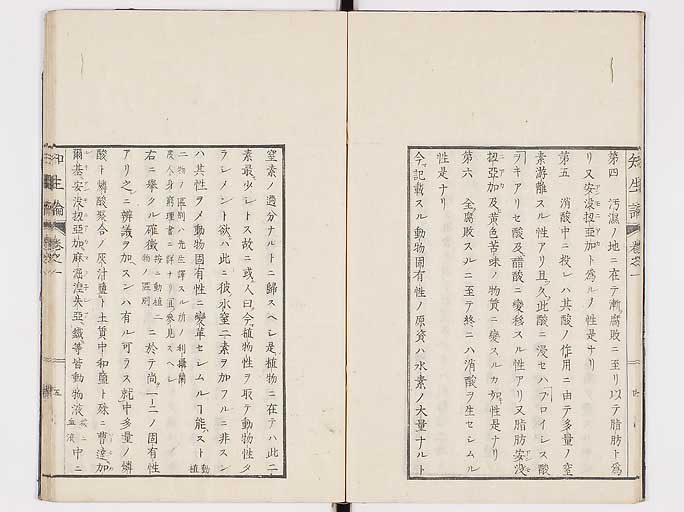 知生論 卷之一
第四 汚濕ノ地ニ在テ漸腐敗ニ至リ以テ脂肪ト爲
リ又安没扭亞加ト為ルノ性是ナリ
第五 消酸中ニ投レハ其酸ノ作用ニ由テ多量ノ窒
素游離スル性アリ且久此酸ニ浸セハ「プロイレス酸
ヲキアリセ酸及醋酸ニ變移スル性アリ又脂肪安没
扭亞加及黄色苦味ノ物質ニ變スルカ如キ性是ナリ
第六 全腐敗スルニ至テ終ニハ消酸ヲ生セシムル
性是ナリ
今記載スル動物固有性ノ原資ハ水素ノ大量ナルト
窒素ノ過分ナルトニ歸スヘシ是植物ニ在テハ此二
素最少レトス故ニ或人曰今植物性ヲ取テ動物性タ
ラシメント欲ハ此ニ彼水窒二素ヲ加フルニ非スン
ハ其性ヲメ動物固有性ニ變革セシムルヿ能スト 動植
二物ノ區別ハ先生譯スル所ノ利摂蘭
度人身窮理書ニ詳ナリ宜參見スヘレ
右ニ擧クル確徴 按ニ動植二物ノ區別 ニ於テ尚一二ノ固有性
アリ之ニ辨識ヲ加スンハ有ル可ラス就中多量ノ燐
酸ト燐酸聚合ノ灰汁鹽ト土質中和鹽ト殊ニ曹達加
爾基安没扭亞加麻倔涅失亞鐵等皆動物液 血液 中ニ
知生論 卷之一 五